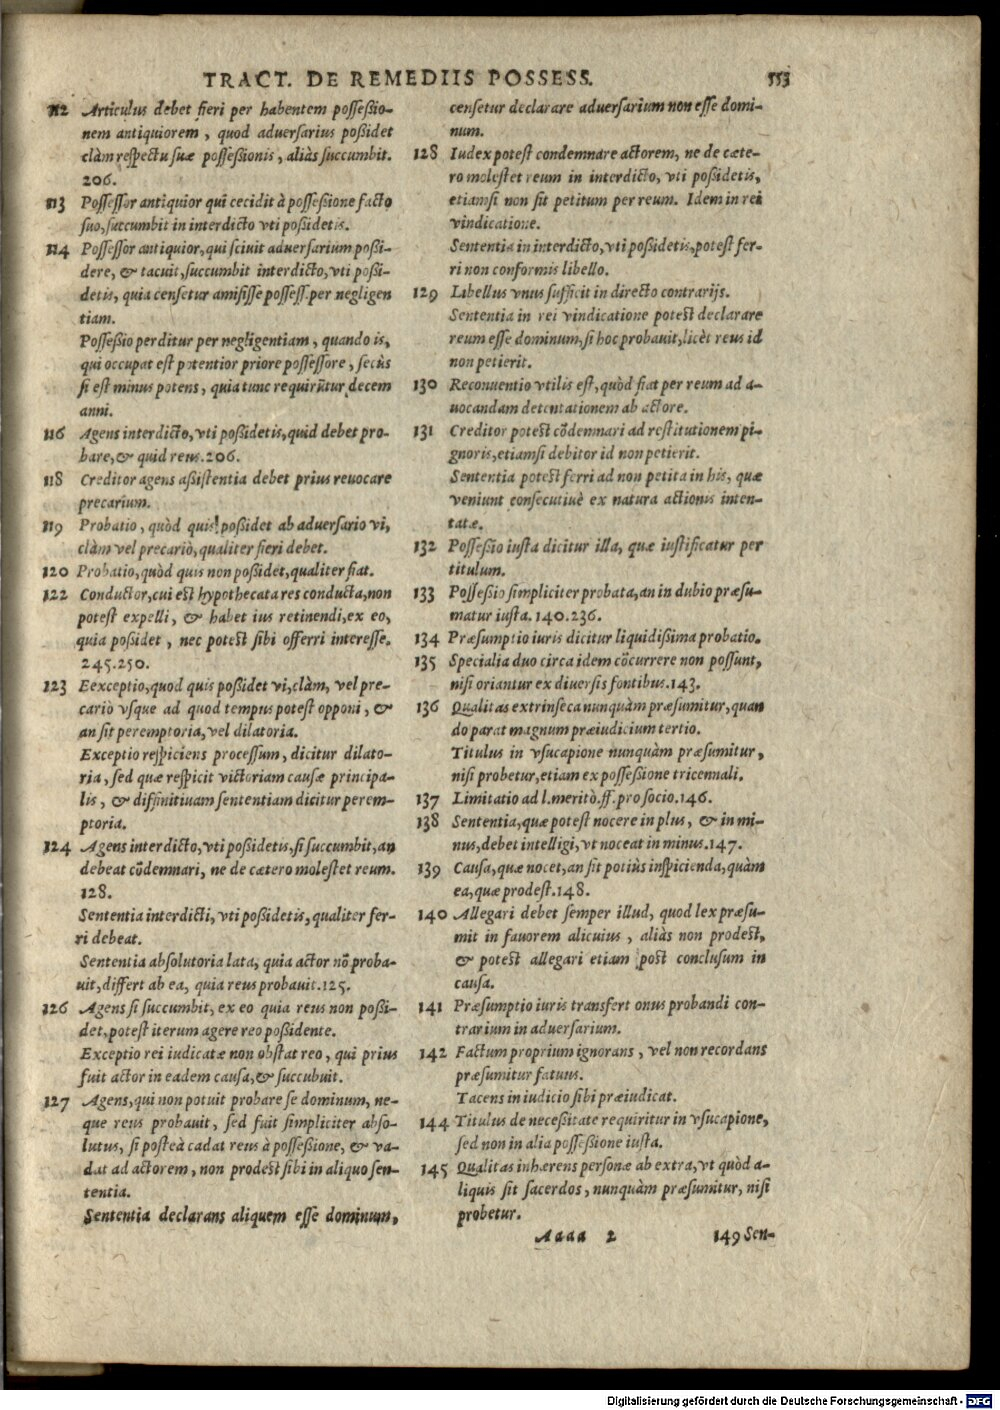 TRACT. DE REMEDIIS POSSESS. 553
112 Articulus debet fieri per habentem possessio-
nem antiquiorem, quod aduersarius possidet
clàm respectu suæ possessionis, aliàs succumbit.
206.
113 Possessor antiquior qui cecidit à possessione facto
suo, succumbit in interdicto vti possidetis.
114 Possessor antiquior, qui sciuit aduersarium possi-
dere, & tacuit, succumbit interdicto, vti possi-
detis, quia censetur amisisse possess. per negligen
tiam.
Possessio perditur per negligentiam, quando is,
qui occupat est potentior priore possessore, secùs
si est minus potens, quia tunc requirũtur decem
anni.
116 Agens interdicto, vti possidetis, quid debet pro-
bare, & quid reus. 206.
118 Creditor agens assistentia debet prius reuocare
precarium.
119 Probatio, quòd quis possidet ab aduersario vi,
clàm vel precariò, qualiter fieri debet.
120 Probatio, quòd quis non possidet, qualiter fiat.
122 Conductor, cui est hypothecata res conducta, non
potest expelli, & habet ius retinendi, ex eo,
quia possidet, nec potest sibi offerri interesse.
245. 250.
123 Eexceptio, quod quis possidet vi, clàm, vel pre-
cariò vsque ad quod tempus potest opponi, &
an sit peremptoria, vel dilatoria.
Exceptio respiciens processum, dicitur dilato-
ria, sed quæ respicit victoriam causæ principa-
lis, & diffinitiuam sententiam dicitur perem-
ptoria.
124 Agens interdicto, vti possidetis, si succumbit, an
debeat cõdemnari, ne de cætero molestet reum.
128.
Sententia interdicti, vti possidetis, qualiter fer-
ri debeat.
Sententia absolutoria lata, quia actor nõ proba-
uit, differt ab ea, quia reus probauit. 125.
126 Agens si succumbit, ex eo quia reus non possi-
det, potest iterum agere reo possidente.
Exceptio rei iudicatæ non obstat reo, qui prius
fuit actor in eadem causa, & succubuit.
127 Agens, qui non potuit probare se dominum, ne-
que reus probauit, sed fuit simpliciter abso-
lutus, si posteà cadat reus à possessione, & va-
dat ad actorem, non prodest sibi in aliquo sen-
tentia.
Sententia declarans aliquem esse dominum,
censetur declarare aduersarium non esse domi-
num.
128 Iudex potest condemnare actorem, ne de cæte-
ro molestet reum in interdicto, vti possidetis,
etiamsi non sit petitum per reum. Idem in rei
vindicatione.
Sententia in interdicto, vti possidetis, potest fer-
ri non conformis libello.
129 Libellus vnus sufficit in directo contrarijs.
Sententia in rei vindicatione potest declarare
reum esse dominum, si hoc probauit, licèt reus id
non petierit.
130 Reconuentio vtilis est, quòd fiat per reum ad a-
uocandam detentationem ab actore.
131 Creditor potest cõdemnari ad restitutionem pi-
gnoris, etiamsi debitor id non petierit.
Sententia potest ferri ad non petita in his, quæ
veniunt consecutiuè ex natura actionis inten-
tatæ.
132 Possessio iusta dicitur illa, quæ iustificatur per
titulum.
133 Possessio simpliciter probata, an in dubio præsu-
matur iusta. 140. 236.
134 Præsumptio iuris dicitur liquidissima probatio.
135 Specialia duo circa idem cõcurrere non possunt,
nisi oriantur ex diuersis fontibus. 143.
136 Qualitas extrinseca nunquàm præsumitur, quan
do parat magnum præiudicium tertio.
Titulus in vsucapione nunquàm præsumitur,
nisi probetur, etiam ex possessione tricennali.
137 Limitatio ad l. meritò. ff. pro socio. 146.
138 Sententia, quæ potest nocere in plus, & in mi-
nus, debet intelligi, vt noceat in minus. 147.
139 Causa, quæ nocet, an sit potiùs inspicienda, quàm
ea, quæ prodest. 148.
140 Allegari debet semper illud, quod lex præsu-
mit in fauorem alicuius, aliàs non prodest,
& potest allegari etiam post conclusum in
causa.
141 Præsumptio iuris transfert onus probandi con-
trarium in aduersarium.
142 Factum proprium ignorans, vel non recordans
præsumitur fatuus.
Tacens in iudicio sibi præiudicat.
144 Titulus de necessitate requiritur in vsucapione,
sed non in alia possessione iusta.
145 Qualitas inhærens personæ ab extra, vt quòd a-
liquis sit sacerdos, nunquàm præsumitur, nisi
probetur.
Aaaa 2 149 Sen-
Digitalisierung gefördert durch die Deutsche Forschungsgemeinschaft - DFG